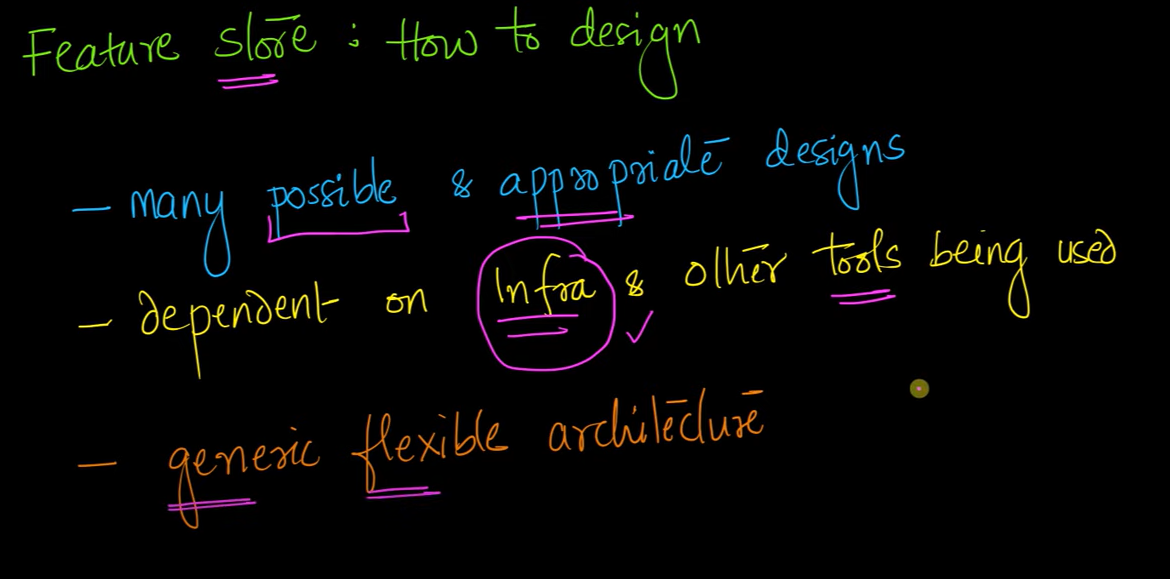 Feature Store : How to design
- many possible & appropriate designs
- dependent on Infra & other tools being used
- generic flexible architecture